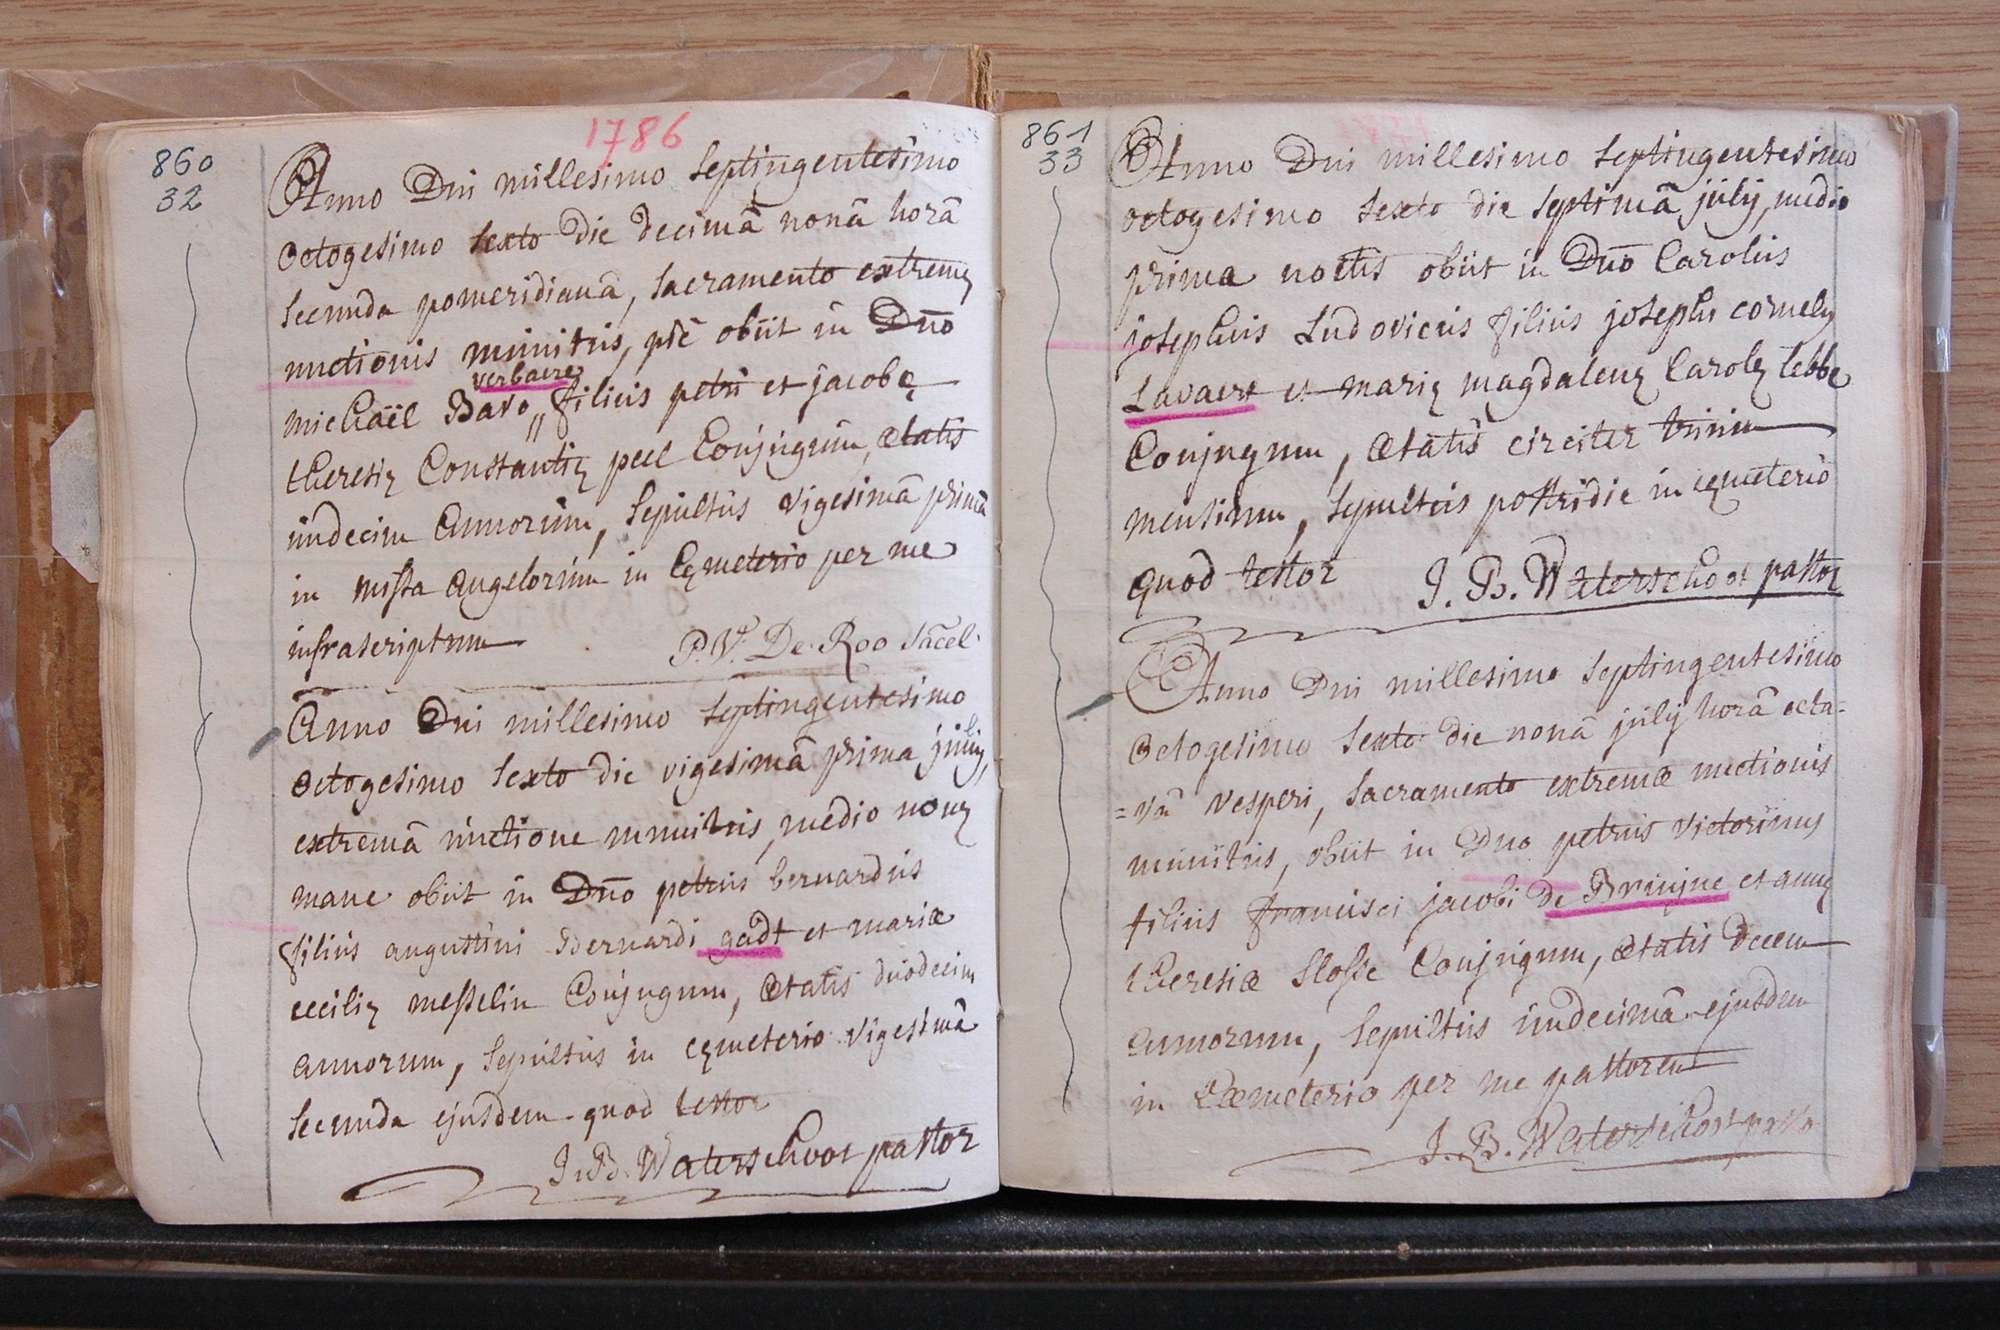 860
32
1786
Anno Dni millesimo septingentesimo
octogesimo sexto die decimâ nonâ horâ
secunda pomeridianâ, sacramento extremę
unctionis munitus, piē obiit in Dn̄o
verbaere
michaël Bavo,, filius petri et jacobę
theresię Constantię peel Conjugum, ætatis
undecim annorum, sepultus vigesimâ primâ
in missa angelorum in Cęmeterio per me
infrascriptum
P. V. De Roo sacel.
Anno Dni millesimo septingentesimo
octogesimo sexto die vigesimâ prima julij,
extremâ unctione munitus, medio nonę
mane obiit in Dn̄o petrus bernardus
filius augustini Bernardi gadt et mariæ
cecilię messelin Conjugum, ætatis duodecim
annorum, sepultus in cęmeterio vigesimâ
secunda ejusdem quod testor
J. B. Waterschoot pastor
861
33
Anno Dni millesimo septingentesimo
octogesimo sexto die septimâ julij, medio
prima noctis obiit in Dn̄o Carolus
josephus Ludovicus filius josephi cornelij
Lavaert et marię magdalenę Carolę lebbe
Conjugum, ætatis circiter trium
mensium, sepultus postridie in cęmeterio
quod testor J. B. Waterschoot pastor
Anno Dni millesimo septingentesimo
octogesimo sexto die nonâ julij horâ octa-
=vâ vesperi, sacramento extremæ unctionis
munitus, obiit in Dno petrus victorinus
filius francisci jacobi de Bruijne et annę
theresiæ slosse Conjugum, ætatis decem
annorum, sepultus undecimâ ejusdem
in Cæmeterio per me pastorem
J. B. Waterschoot pasto